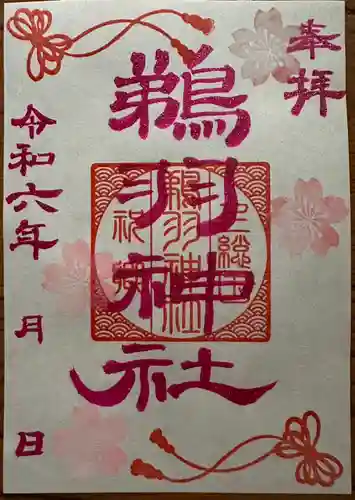 奉拝
鵜羽神社
上総国
鵜羽神社
令和六年 月 日